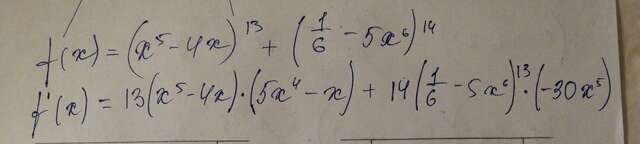 f(x) = (x⁵-4x)¹³ + (1/6 - 5x⁶)¹⁴
f'(x) = 13(x⁵-4x)·(5x⁴-x) + 14(1/6 - 5x⁶)¹³·(-30x⁵)